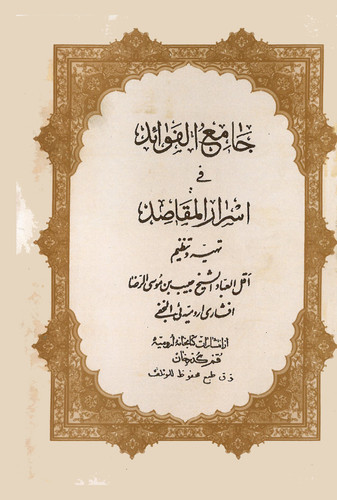 جامع الفوائد
في
اسرار المقاصد
تهیه و تنظیم
أقل العباد الشيخ حبيب بن موسى الرضا
افشاری ارومیه ئی النجفی
از انتشارات کتابخانه ارومیه
قم گذرخان
حق طبع محفوظ للمؤلف